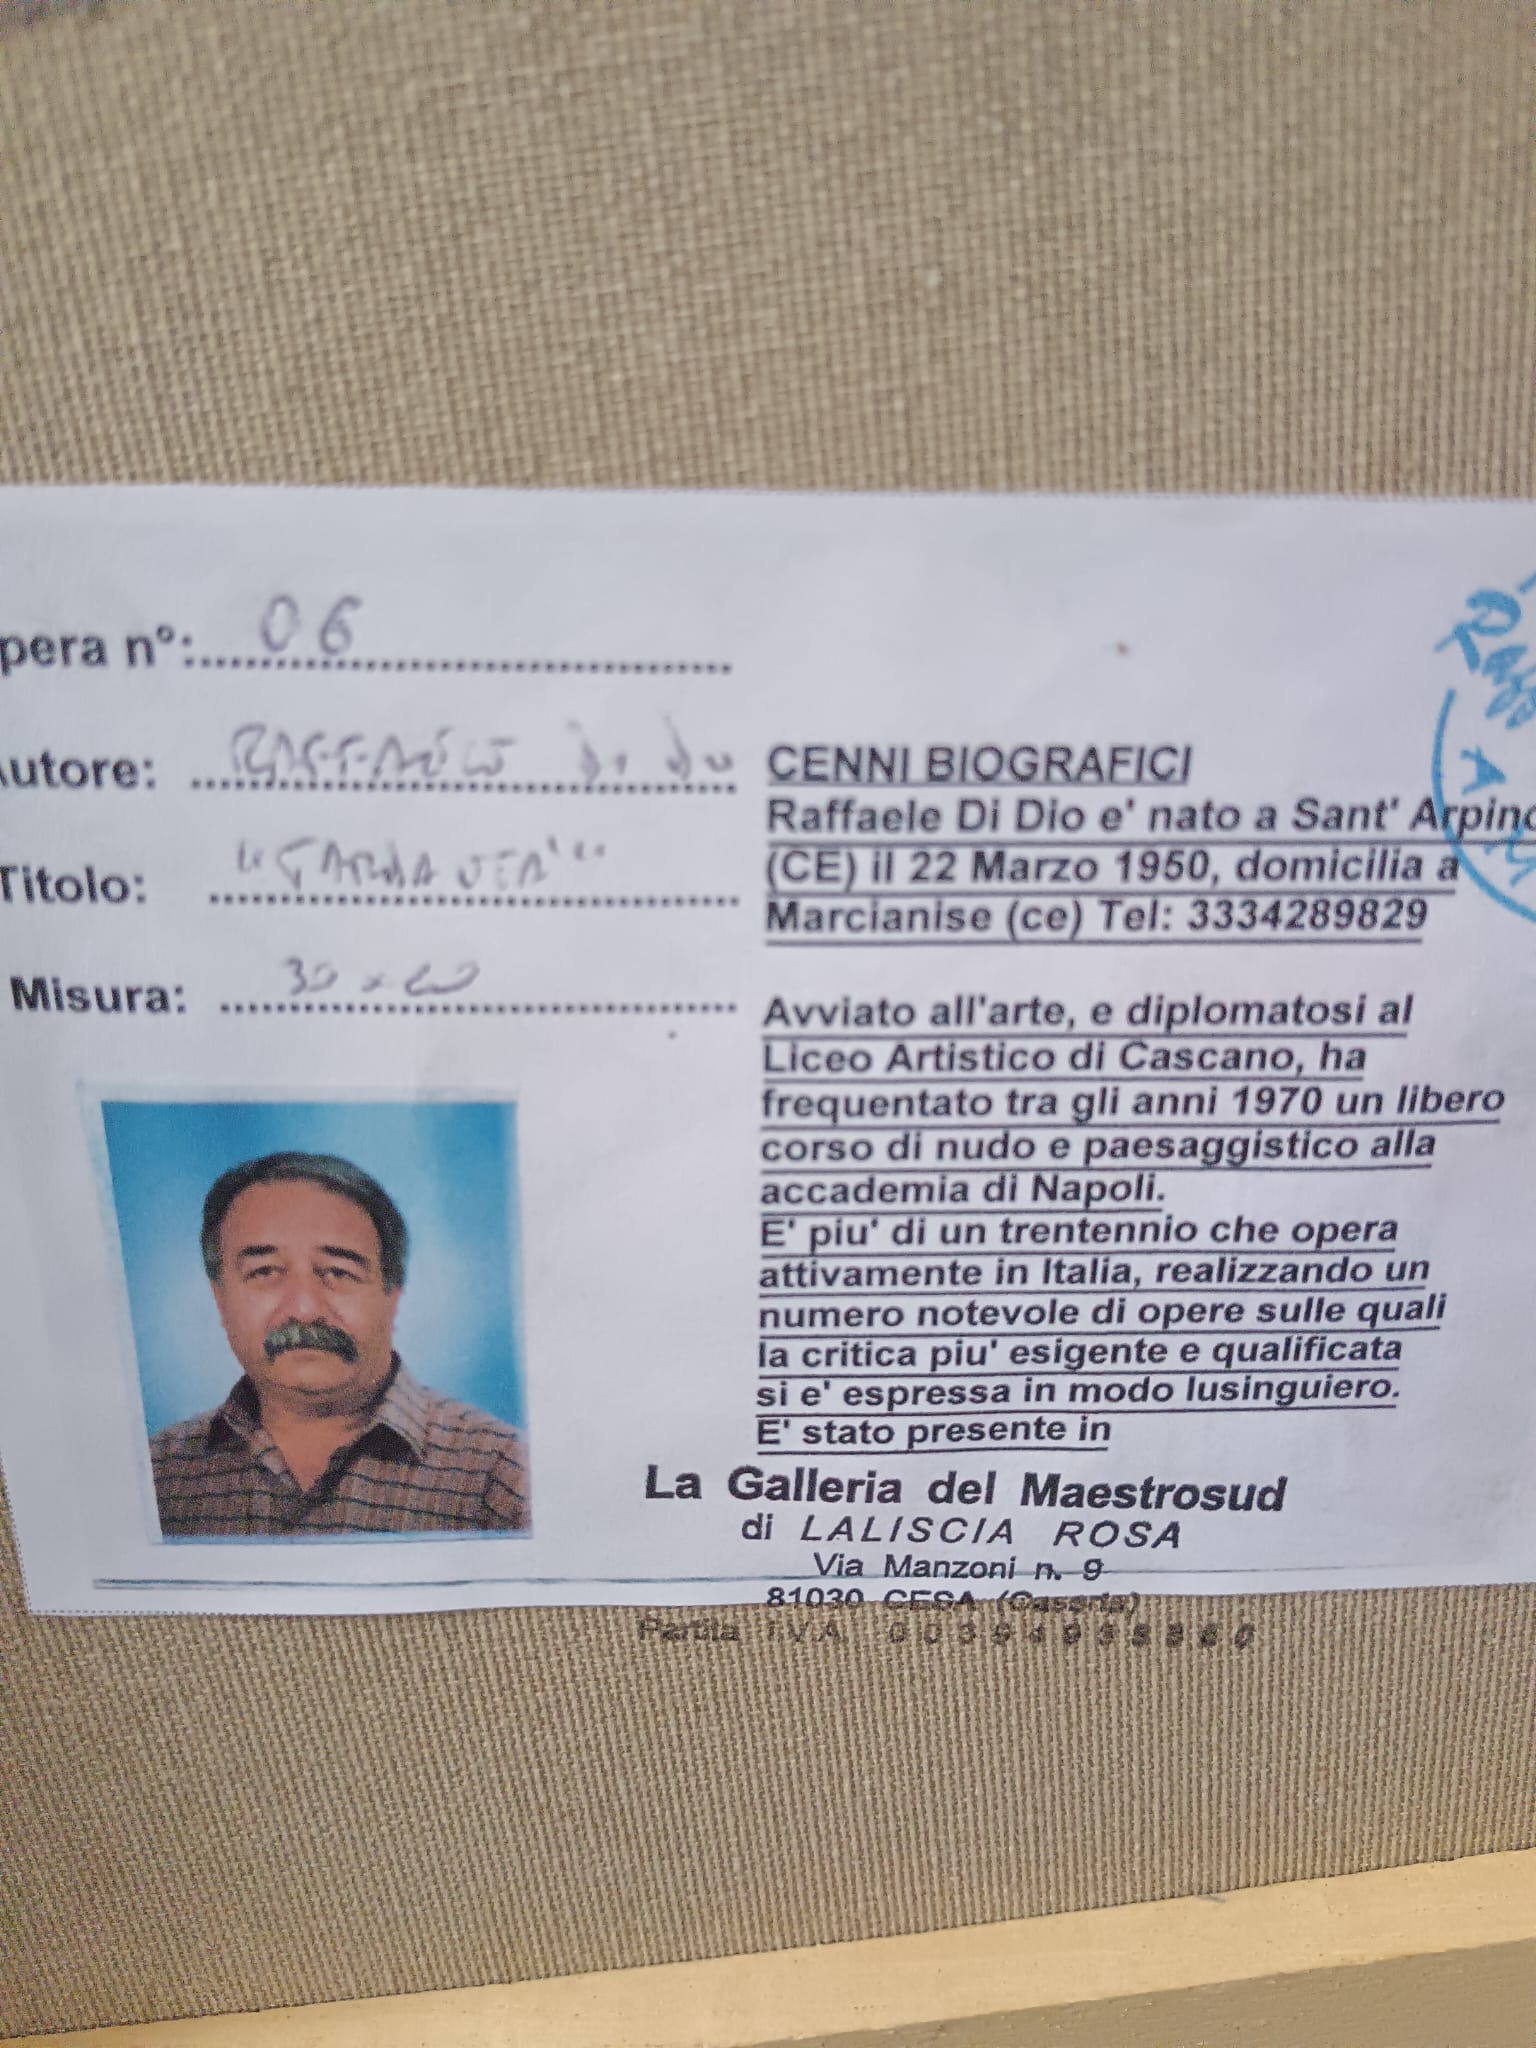 pera n°: 06
utore: RAFFAELE Di Dio
Titolo:
Misura: 30 x
CENNI BIOGRAFICI
Raffaele Di Dio e' nato a Sant' Arpino
(CE) il 22 Marzo 1950, domicilia a
Marcianise (ce) Tel: 3334289829
Avviato all'arte, e diplomatosi al
Liceo Artistico di Cascano, ha
frequentato tra gli anni 1970 un libero
corso di nudo e paesaggistico alla
accademia di Napoli.
E' piu' di un trentennio che opera
attivamente in Italia, realizzando un
numero notevole di opere sulle quali
la critica piu' esigente e qualificata
si e' espressa in modo lusinguiero.
E' stato presente in
La Galleria del Maestrosud
di LALISCIA ROSA
Via Manzoni n. 9
81030 CESA (Caserta)
Partita I.V.A.